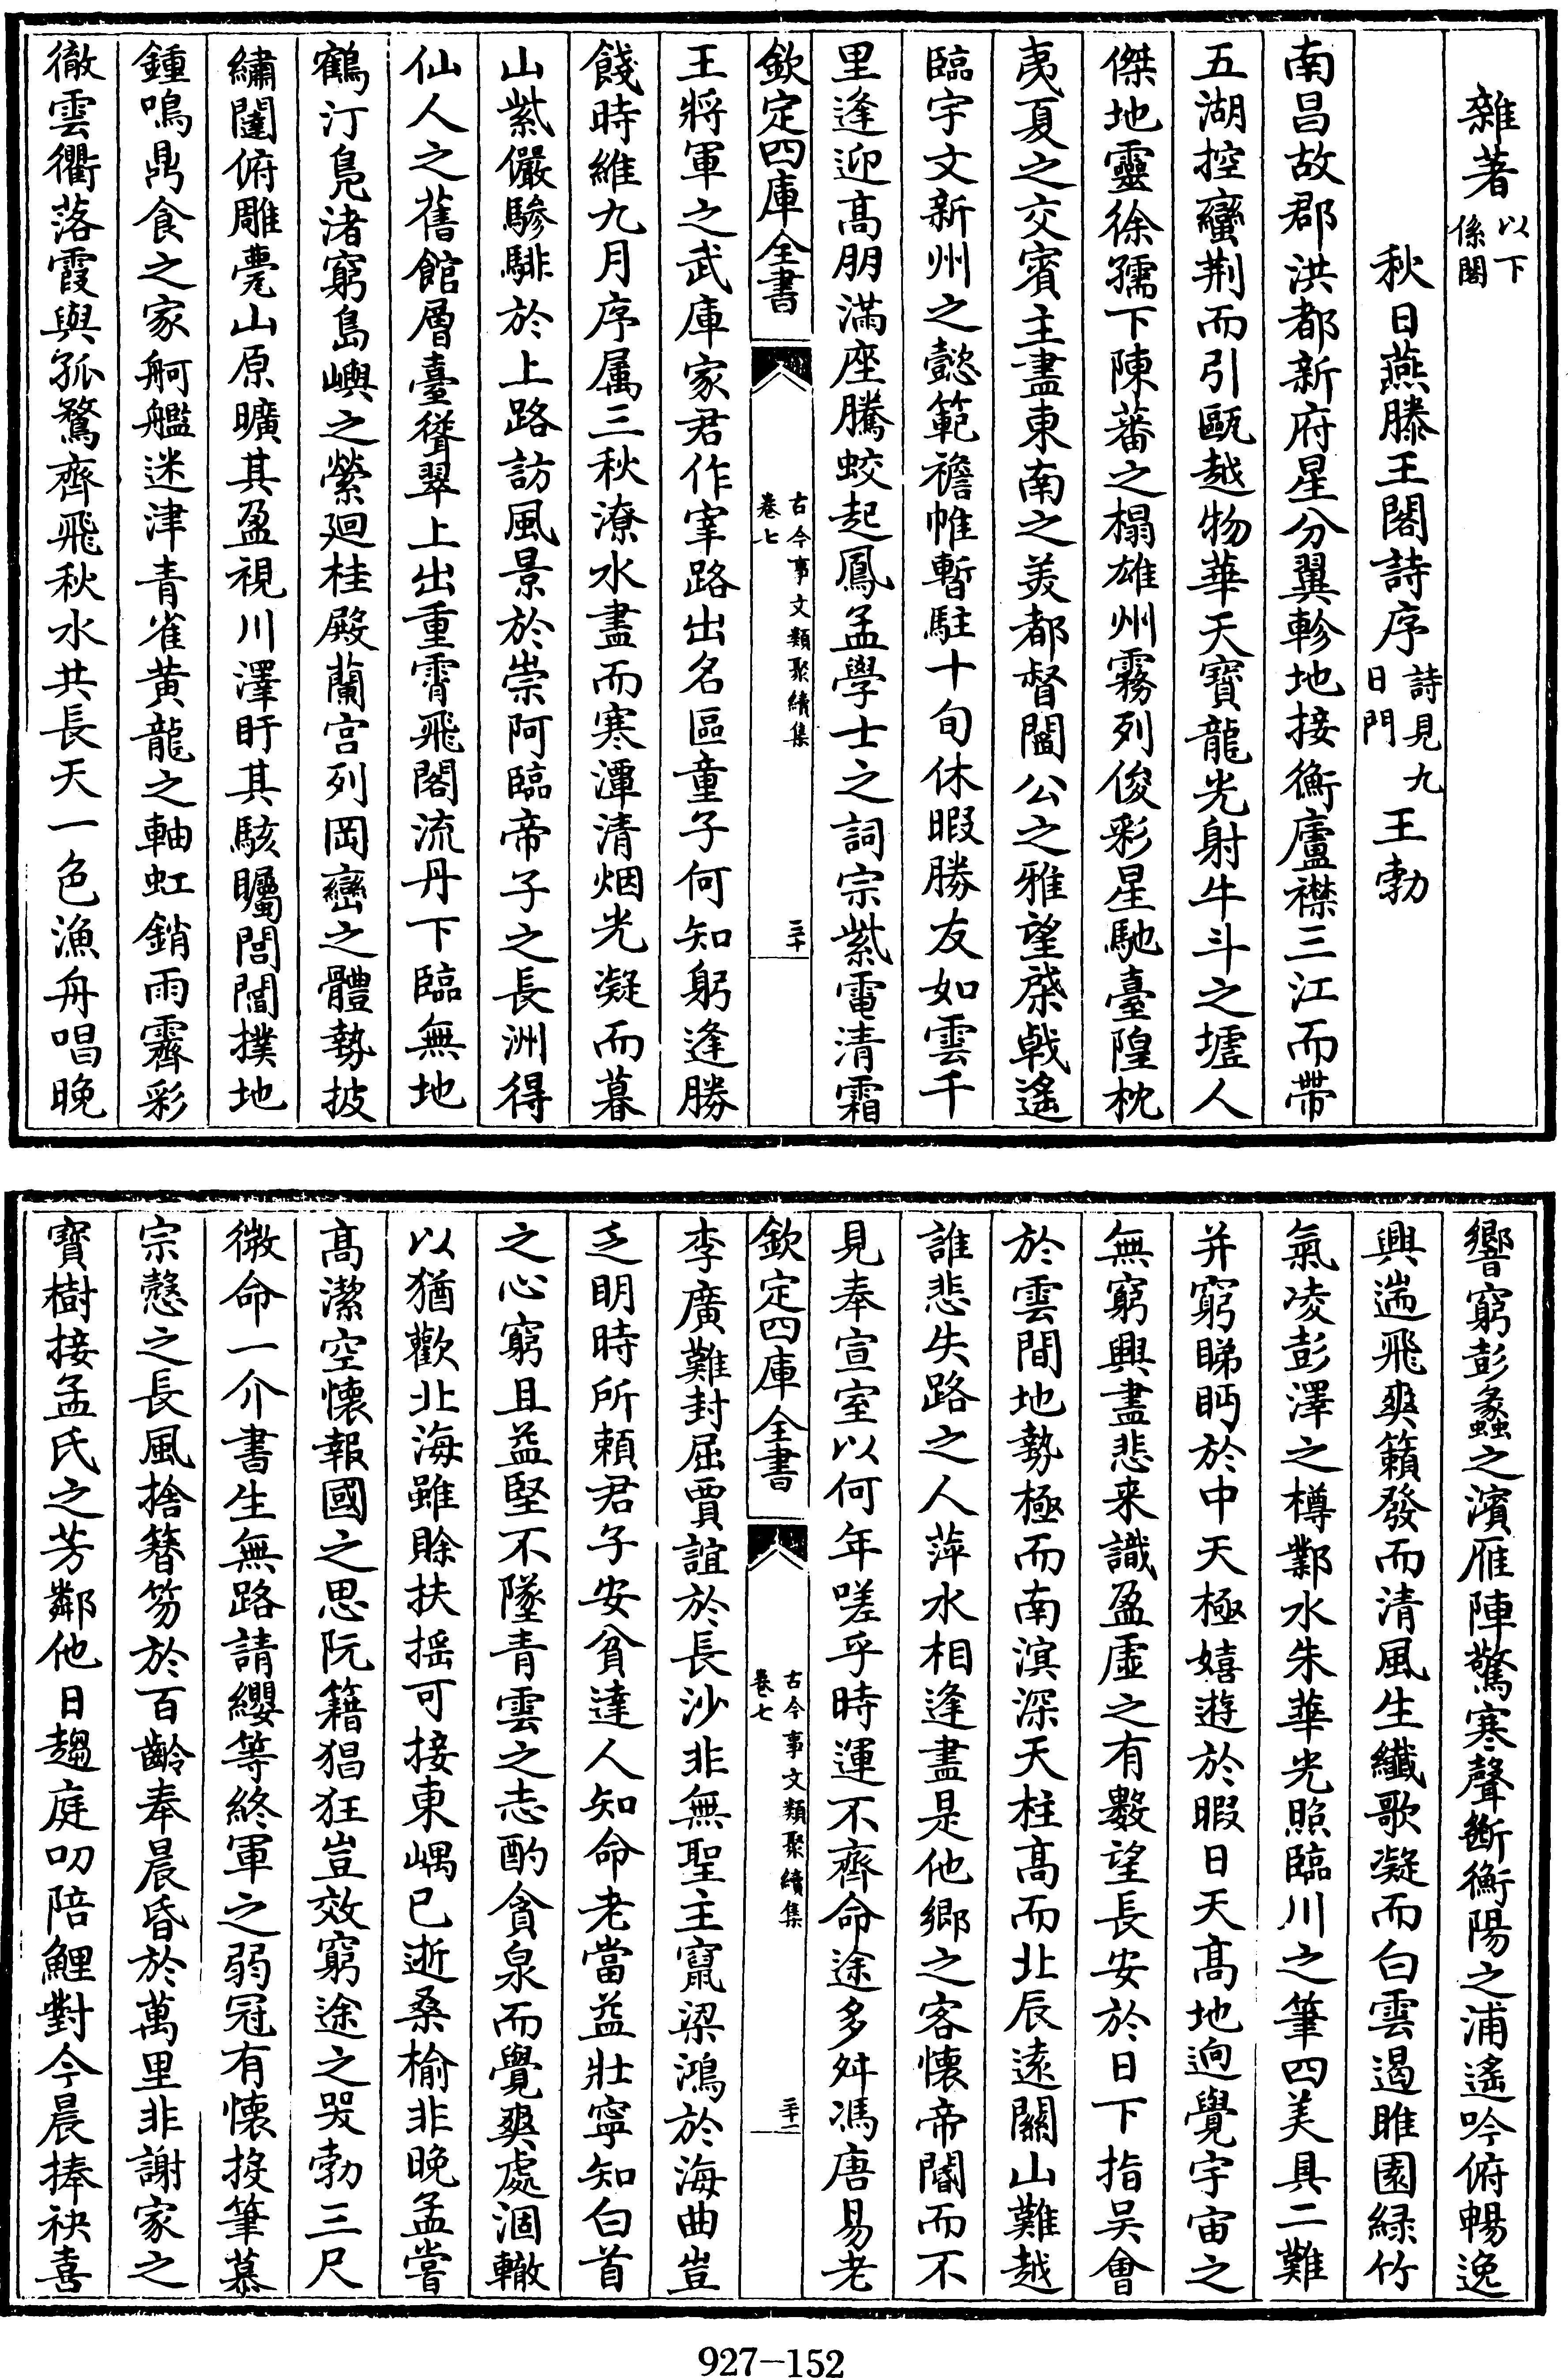 雜著以下係閣
秋日燕滕王閣詩序詩見九日門 王勃
南昌故郡洪都新府星分翼軫地接衡廬襟三江而帶
五湖控蠻荆而引甌越物華天寶龍光射牛斗之墟人
傑地靈徐孺下陳蕃之榻雄州霧列俊彩星馳臺隍枕
夷夏之交賓主盡東南之羙都督閻公之雅望棨戟遙
臨宇文新州之懿範襜帷暫駐十旬休暇勝友如雲千
里逢迎高朋滿座騰蛟起鳳孟學士之詞宗紫電清霜
欽定四庫全書 古今事文類聚續集卷七 三十
王將軍之武庫家君作宰路出名區童子何知躬逢勝
餞時維九月序属三秋潦水盡而寒潭清烟光凝而暮
山紫儼驂騑於上路訪風景於崇阿臨帝子之長洲得
仙人之舊館層臺聳翠上出重霄飛閣流丹下臨無地
鶴汀鳧渚窮島嶼之縈廻桂殿蘭宫列岡巒之體勢披
繡闥俯雕甍山原曠其盈視川澤盱其駭矚閭閻撲地
鍾鳴鼎食之家舸艦迷津青雀黄龍之軸虹銷雨霽彩
徹雲衢落霞與孤鶩齊飛秋水共長天一色漁舟唱晚
響窮彭蠡之濱雁陣驚寒聲斷衡陽之浦遙吟俯暢逸
興遄飛爽籟發而清風生纖歌凝而白雲遏睢園緑竹
氣凌彭澤之樽鄴水朱華光照臨川之筆四美具二難
并窮睇眄於中天極嬉遊於暇日天高地迥覺宇宙之
無窮興盡悲来識盈虛之有數望長安於日下指吴會
於雲間地勢極而南溟深天柱高而北辰遠關山難越
誰悲失路之人萍水相逢盡是他鄉之客懷帝閽而不
見奉宣室以何年嗟乎時運不齊命途多舛馮唐易老
欽定四庫全書 古今事文類聚續集卷七 三十一
李廣難封屈賈誼於長沙非無聖主竄梁鴻於海曲豈
乏明時所頼君子安貧達人知命老當益壯寧知白首
之心窮且益堅不墜青雲之志酌貪泉而覺爽處涸轍
以猶歡北海雖賒扶揺可接東嵎已逝桑榆非晚孟嘗
高潔空懷報國之思阮籍猖狂豈效窮途之哭勃三尺
微命一介書生無路請纓等終軍之弱冠有懷投筆慕
宗慤之長風捨簪笏於百齡奉晨昏於萬里非謝家之
寶樹接孟氏之芳鄰他日趨庭叨陪鯉對今晨捧袂喜
927-152